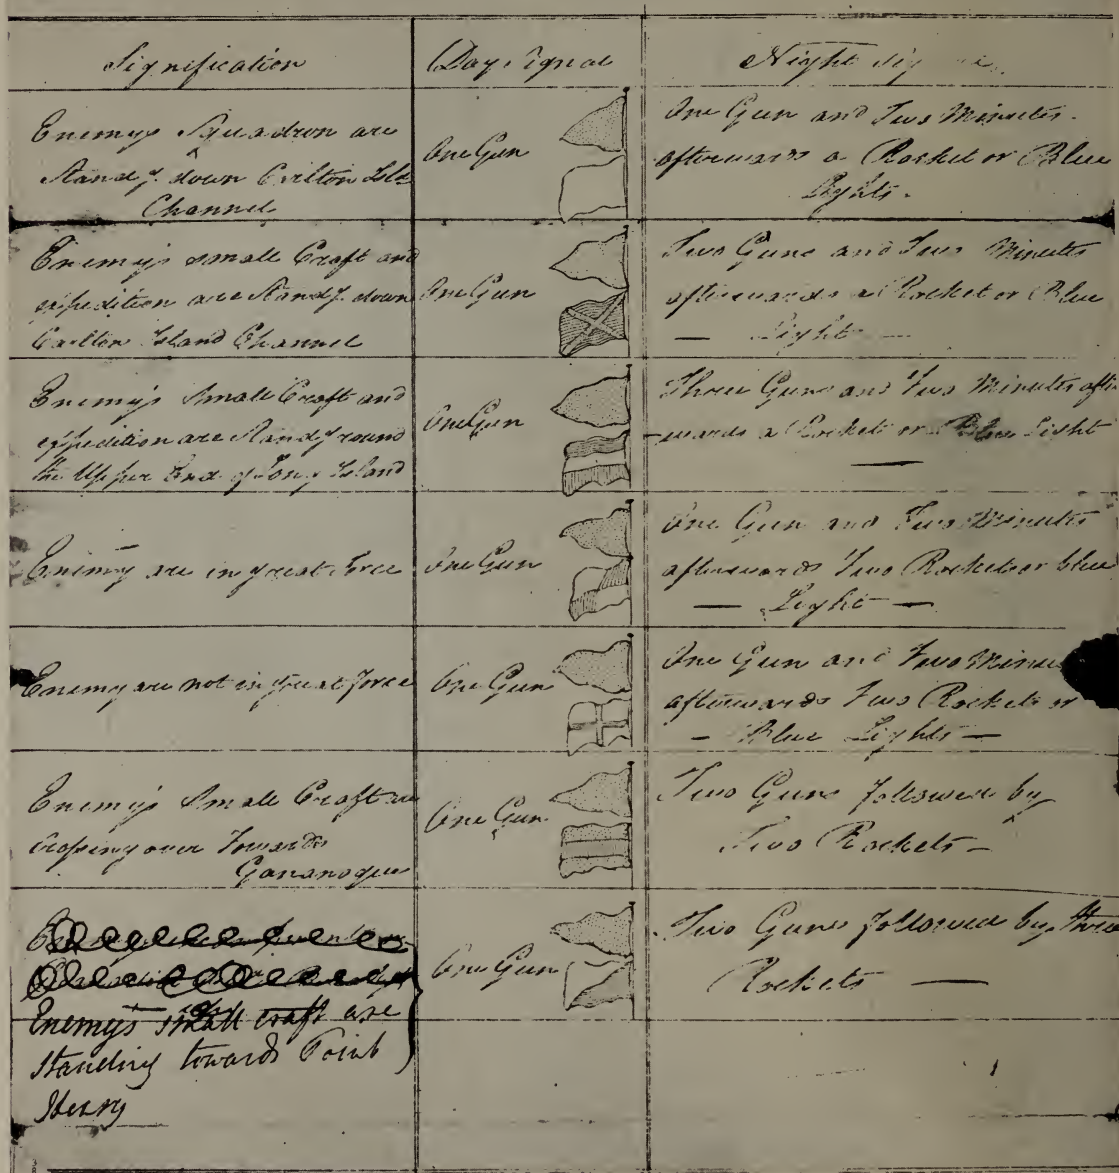 Signification
Day Signal
Night Sig
Enemy's Squadron are
Stands. down Carlton Isld
Channel
One Gun
One Gun and Two Minutes
afterwards a Rocket or Blue
Lights.
Enemy's small Craft and
expedition are Stands. down
Carlton Island Channel
One Gun
Two Guns and Two Minutes
afterwards a Rocket or Blue
— Light —
Enemy's Small Craft and
expedition are Stands. round
the Upper End of Long Island
One Gun
Three Guns and Two Minutes after
-wards a Rocket or Blue Light
—
Enemy are in great force
One Gun
One Gun and Two Minutes
afterwards Two Rockets or blue
— Light —
Enemy are not in great force
One Gun
One Gun and Two Minu
afterwards Two Rockets or
— Blue Lights —
Enemy's Small Craft are
Crossing over Towards
Gananoque
One Gun
Two Guns followed by
Two Rockets —
One Gun
Two Guns followed by three
Rockets —
Enemy's small craft are
standing towards Point
Henry